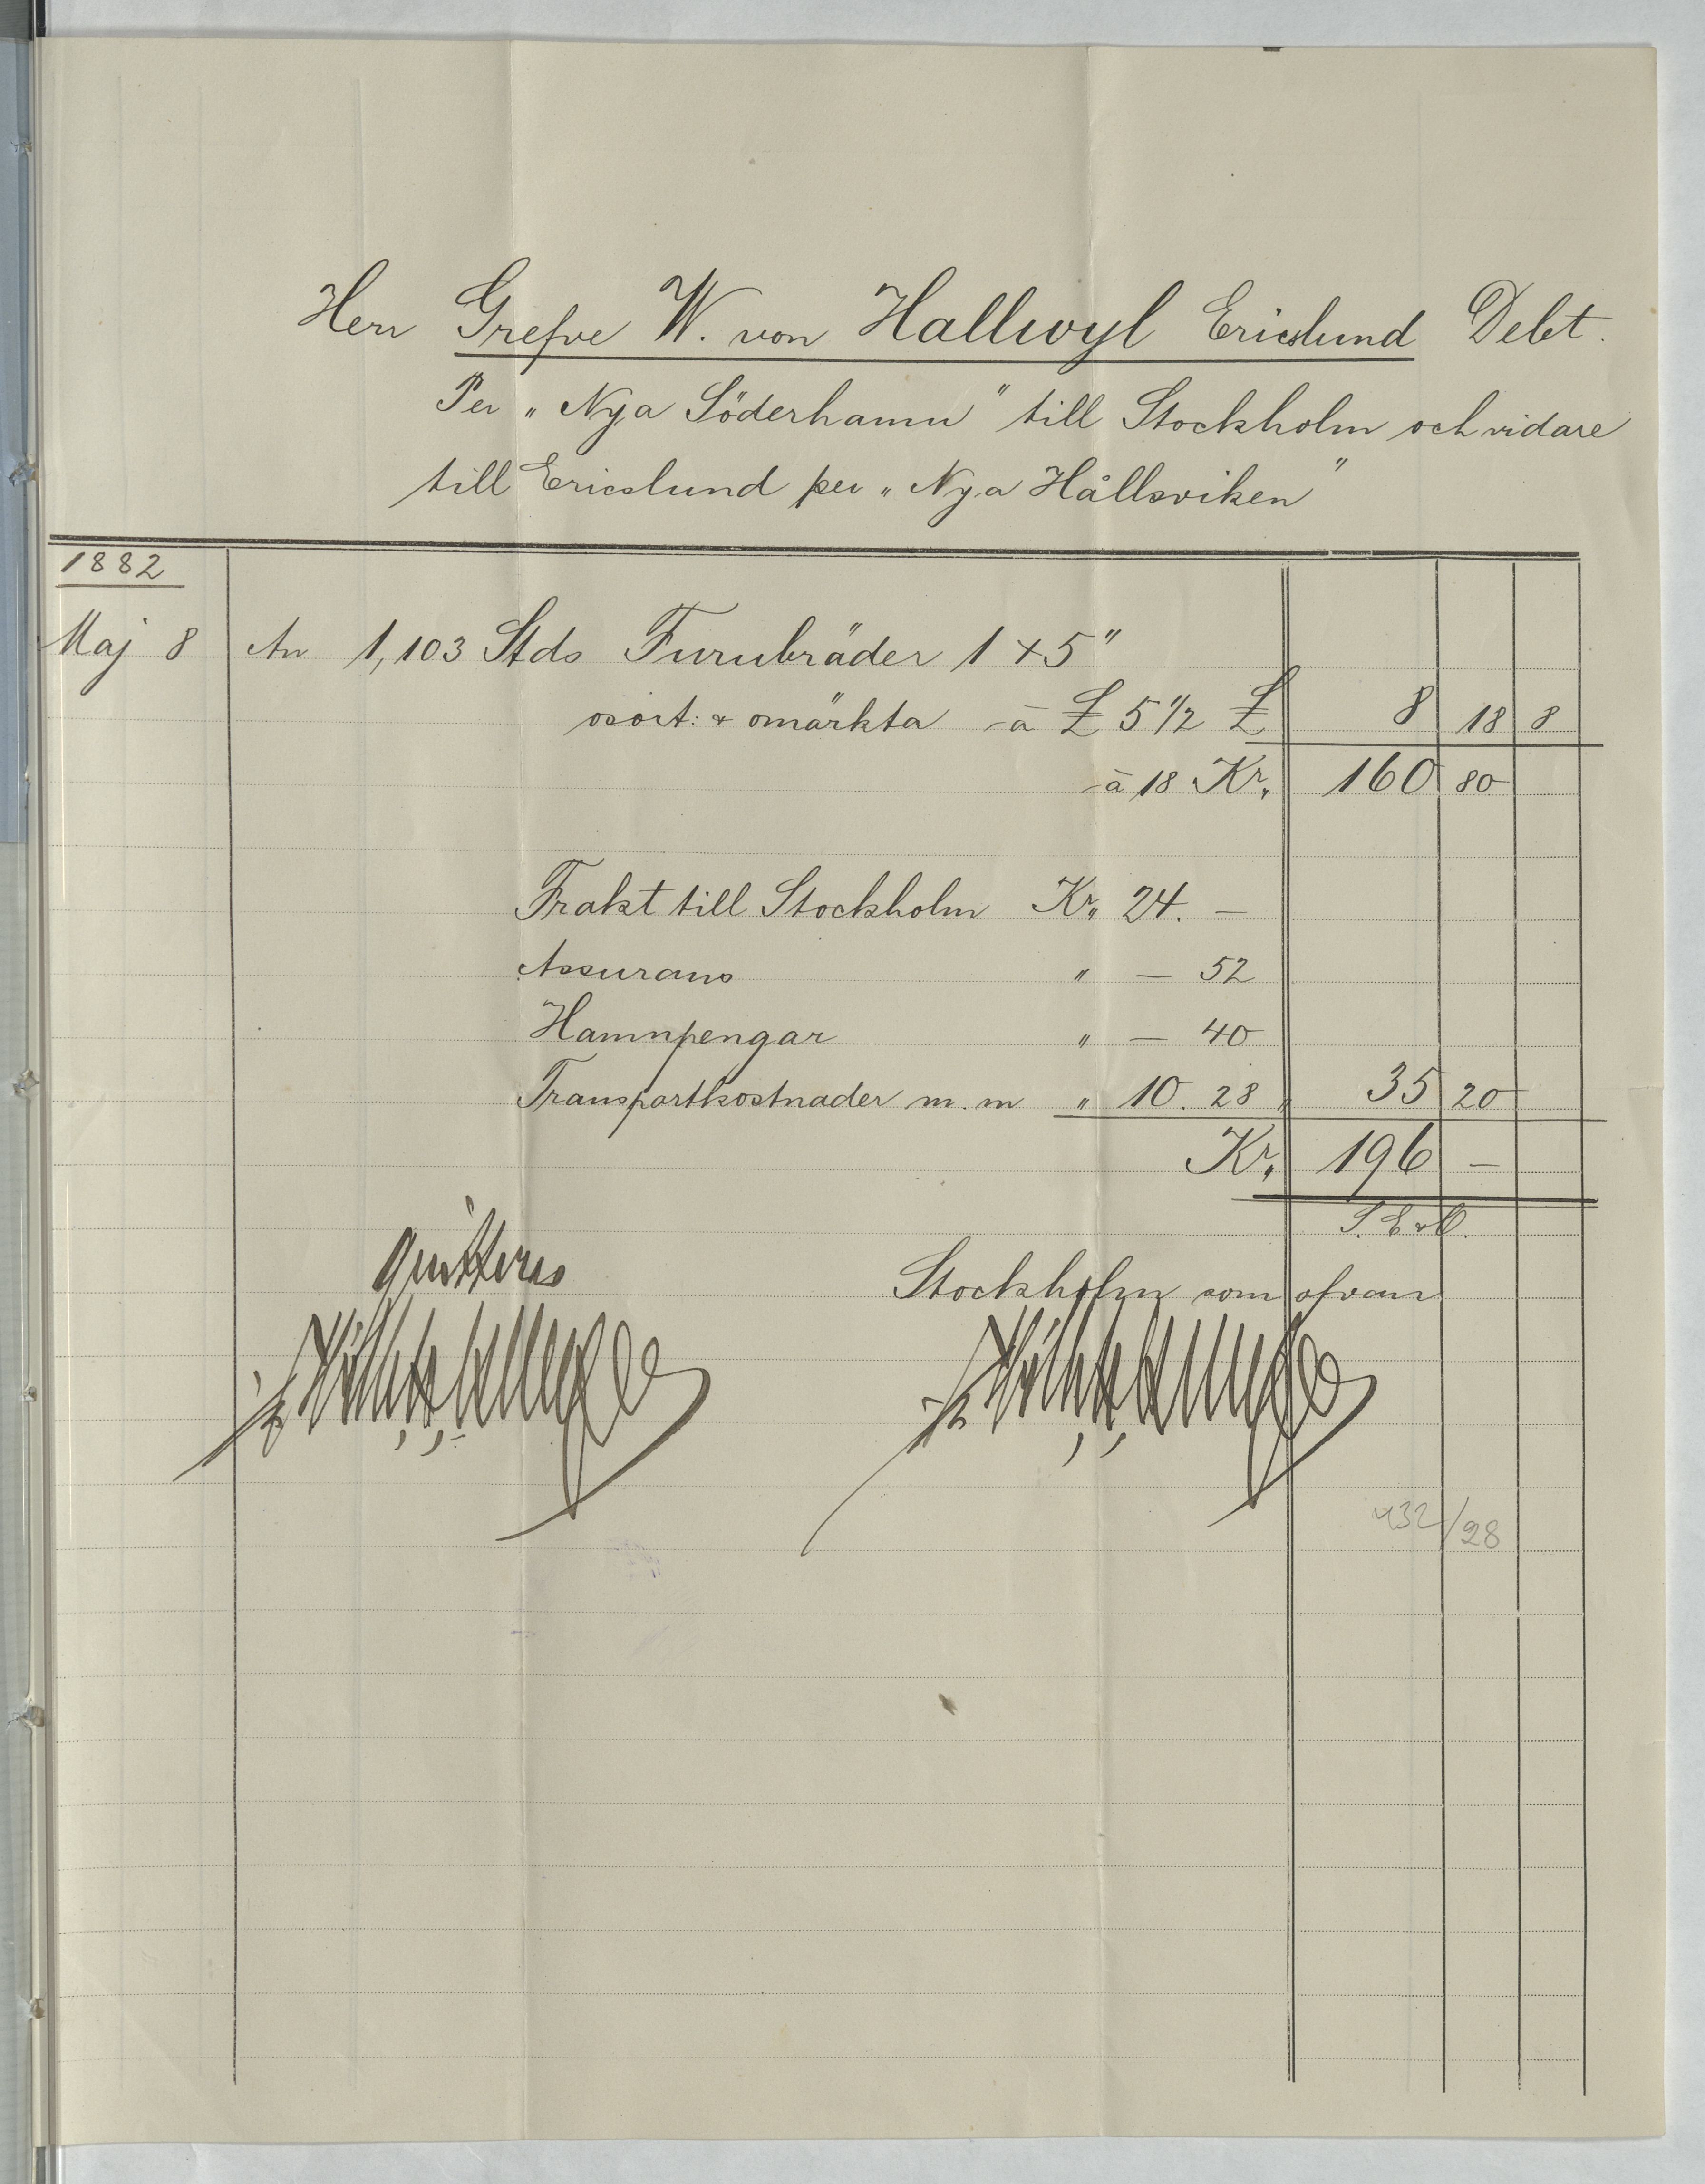 Herr Grefve W. von Hallwyl Ericslund Debt.
Per „Nya Söderhamn" till Stockholm och vidare
till Ericslund per „Nya Hållsviken"
1882
Maj 8 An 1,103 Stds Furubräder 1 x 5"
osort: & omärkta à £ 5 1/2 £ 8 18 8
à 18 Kr. 160 80
Frakt till Stockholm Kr. 24. —
Assurans " — 52
Hamnpengar " — 40
Transportkostnader m.m " 10. 28 " 35 20
Kr. 196 —
S. E & O.
Qvitteras
Stockholm som ofvan
432/28